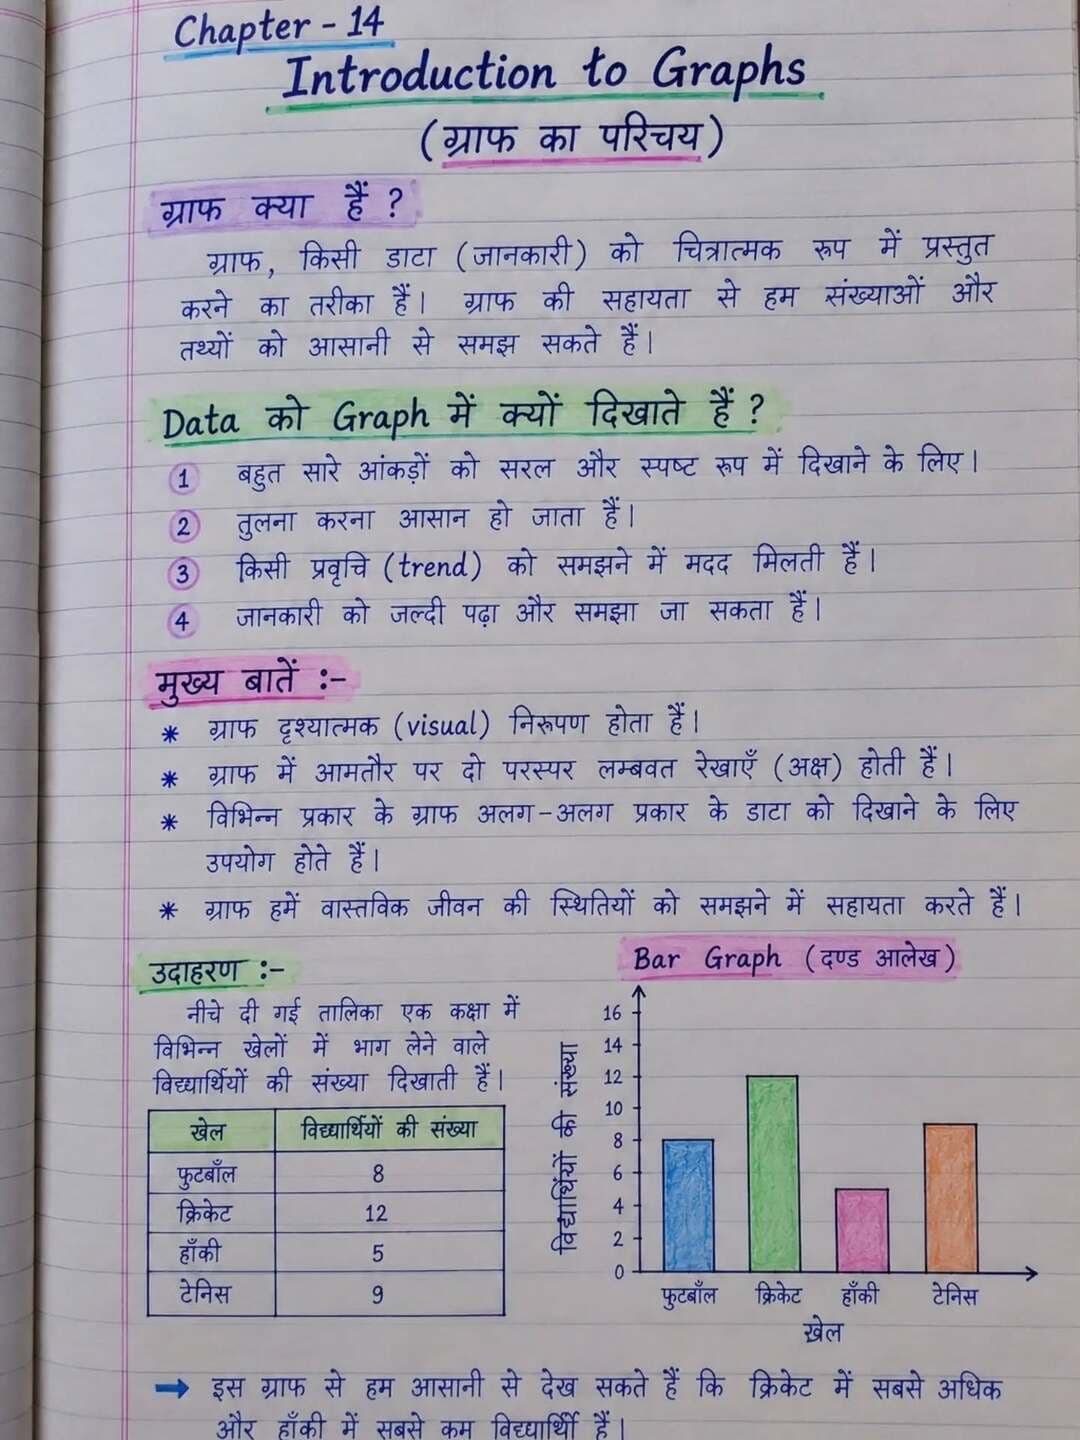 Chapter - 14
Introduction to Graphs
(ग्राफ का परिचय)
ग्राफ क्या हैं ?
ग्राफ, किसी डाटा (जानकारी) को चित्रात्मक रूप में प्रस्तुत
करने का तरीका हैं। ग्राफ की सहायता से हम संख्याओं और
तथ्यों को आसानी से समझ सकते हैं।
Data को Graph में क्यों दिखाते हैं ?
1 बहुत सारे आंकड़ों को सरल और स्पष्ट रूप में दिखाने के लिए।
2 तुलना करना आसान हो जाता हैं।
3 किसी प्रवृचि (trend) को समझने में मदद मिलती हैं।
4 जानकारी को जल्दी पढ़ा और समझा जा सकता हैं।
मुख्य बातें :-
* ग्राफ दृश्यात्मक (visual) निरूपण होता हैं।
* ग्राफ में आमतौर पर दो परस्पर लम्बवत रेखाएँ (अक्ष) होती हैं।
* विभिन्न प्रकार के ग्राफ अलग-अलग प्रकार के डाटा को दिखाने के लिए
उपयोग होते हैं।
* ग्राफ हमें वास्तविक जीवन की स्थितियों को समझने में सहायता करते हैं।
उदाहरण :-
नीचे दी गई तालिका एक कक्षा में
विभिन्न खेलों में भाग लेने वाले
विद्यार्थियों की संख्या दिखाती हैं।
खेल विद्यार्थियों की संख्या
फुटबाँल 8
क्रिकेट 12
हाँकी 5
टेनिस 9
Bar Graph (दण्ड आलेख)
विद्यार्थियों की संख्या
16
14
12
10
8
6
4
2
0
फुटबाँल क्रिकेट हाँकी टेनिस
खेल
→ इस ग्राफ से हम आसानी से देख सकते हैं कि क्रिकेट में सबसे अधिक
और हाँकी में सबसे कम विद्यार्थी हैं।